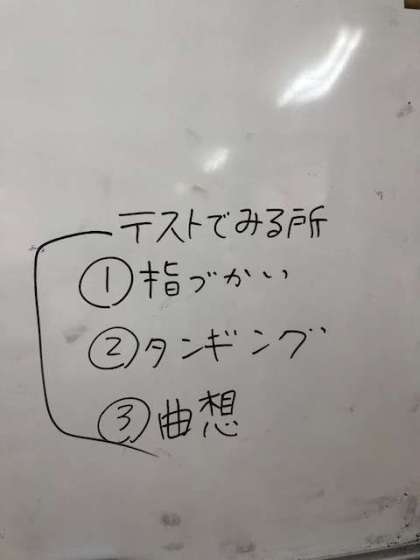 テストでみる所
① 指づかい
② タンギング
③ 曲想